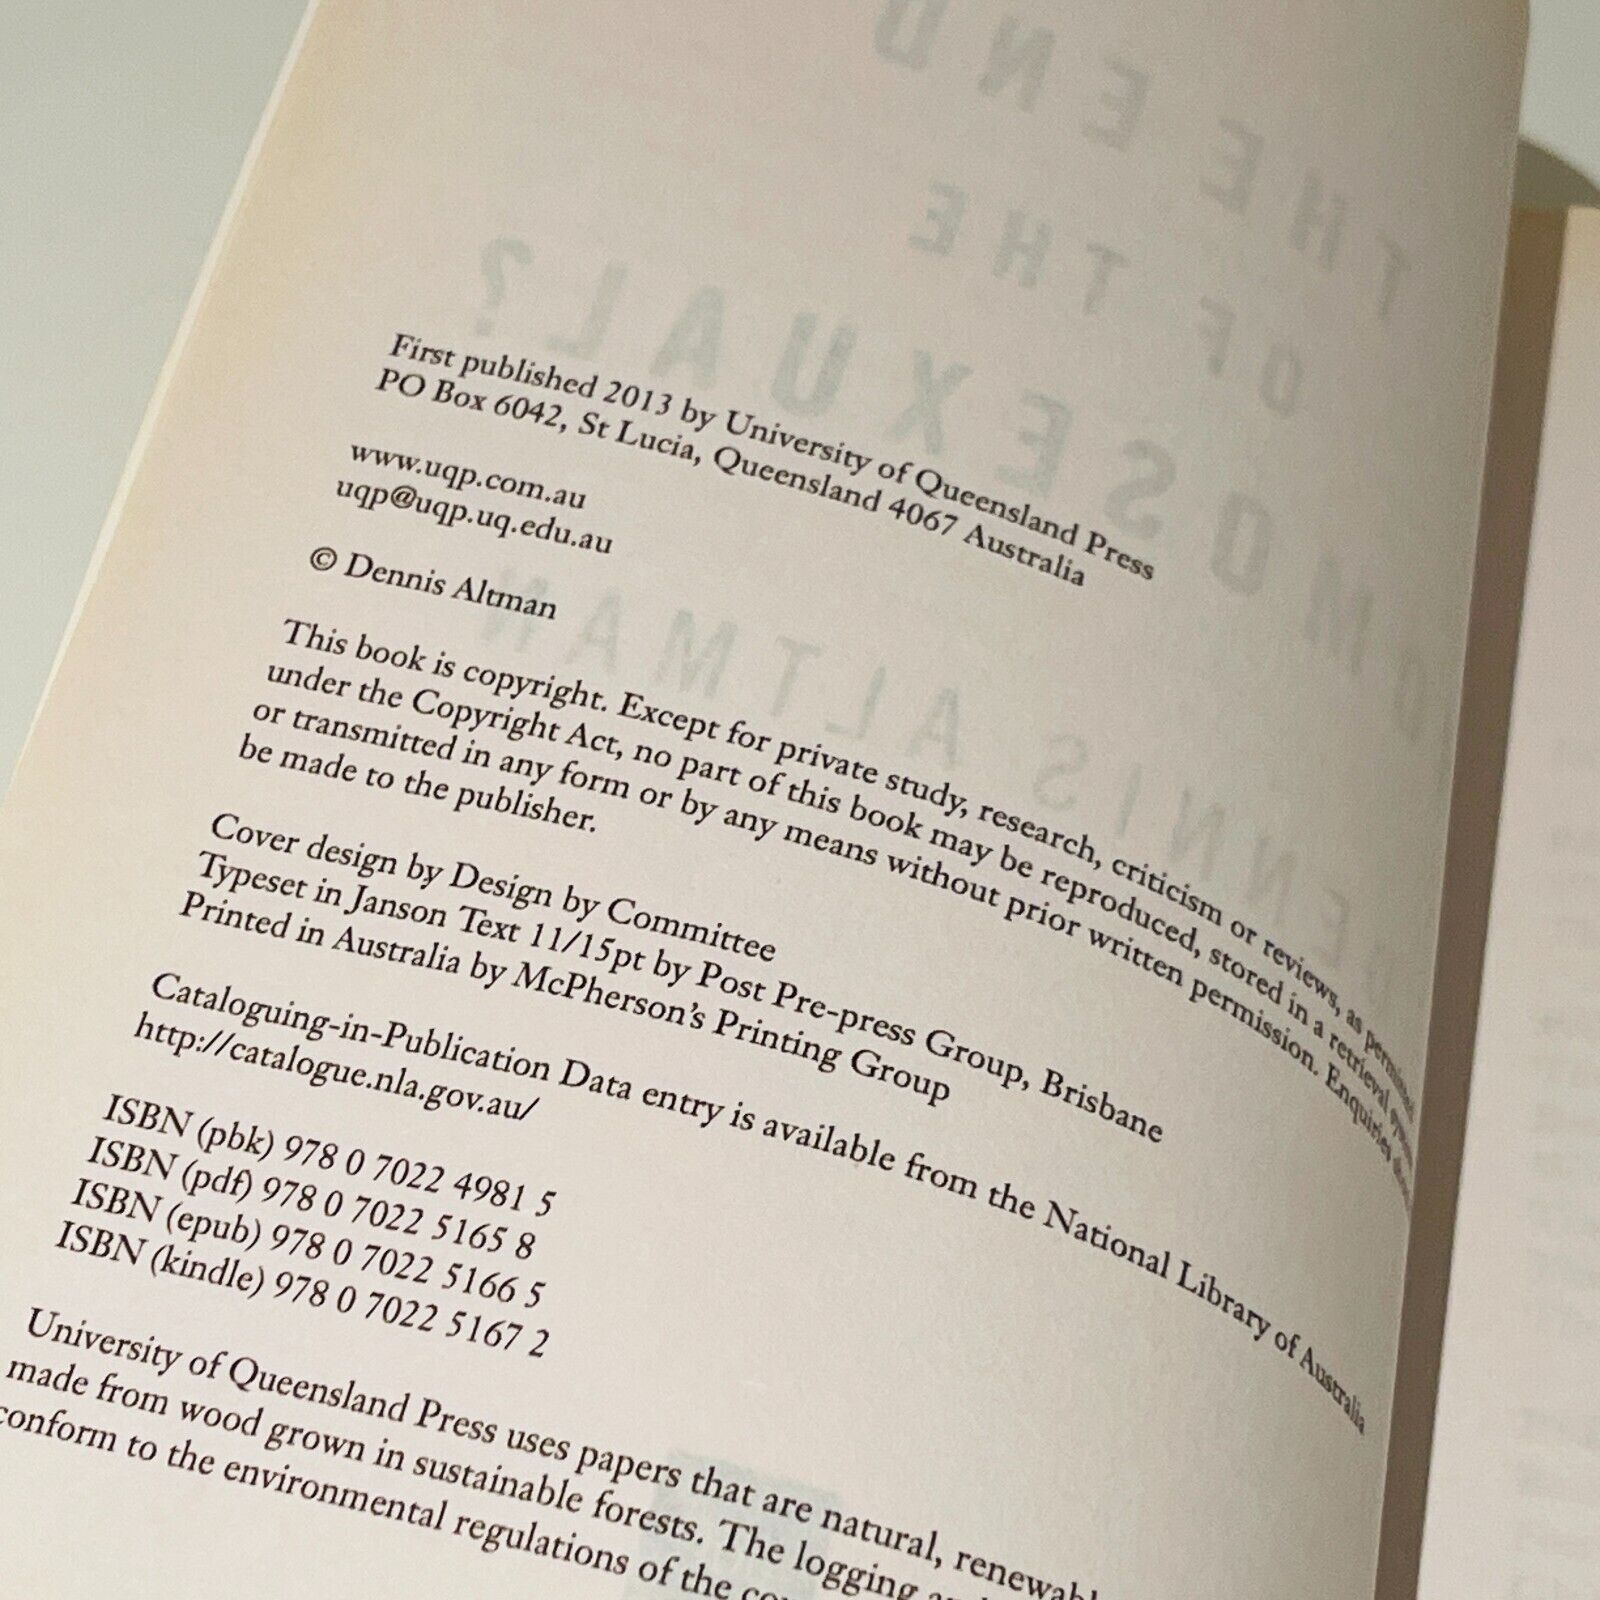 First published 2013 by University of Queensland Press
PO Box 6042, St Lucia, Queensland 4067 Australia
www.uqp.com.au
uqp@uqp.uq.edu.au
© Dennis Altman
This book is copyright. Except for private study, research, criticism or reviews, as permitted
under the Copyright Act, no part of this book may be reproduced, stored in a retrieval
or transmitted in any form or by any means without prior written permission. Enquiries
be made to the publisher.
Cover design by Design by Committee
Typeset in Janson Text 11/15pt by Post Pre-press Group, Brisbane
Printed in Australia by McPherson's Printing Group
Cataloguing-in-Publication Data entry is available from the National Library of Australia
http://catalogue.nla.gov.au/
ISBN (pbk) 978 0 7022 4981 5
ISBN (pdf) 978 0 7022 5165 8
ISBN (epub) 978 0 7022 5166 5
ISBN (kindle) 978 0 7022 5167 2
University of Queensland Press uses papers that are natural,
made from wood grown in sustainable forests. The logging
conform to the environmental regulations of the
THE END
OF THE
SEXUAL?
ALTMAN